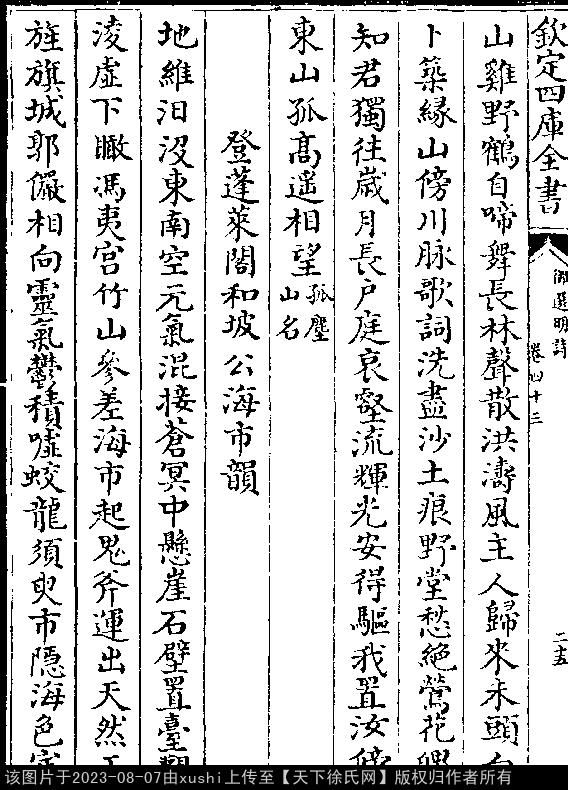 欽定四庫全書
御選明詩
卷四十三
二十五
山雞野鶴自啼舞長林聲散洪濤風主人歸來未頭白
卜築緣山傍川脉歌詞洗盡沙土痕野堂愁絶鶯花
知君獨徃嵗月長户庭哀壑流輝光安得驅我置汝傍
東山孤髙遥相望孤塵山名
登蓬萊閣和坡公海市韻
地維汨沒東南空元氣混接蒼冥中懸崖石壁置臺
淩虛下瞰馮夷宫竹山參差海市起鬼斧運出天然
旌旗城郭儼相向靈氣鬱積嘘蛟龍須臾市隱海色
该图片于2023-08-07由xushi上传至【天下徐氏网】版权归作者所有